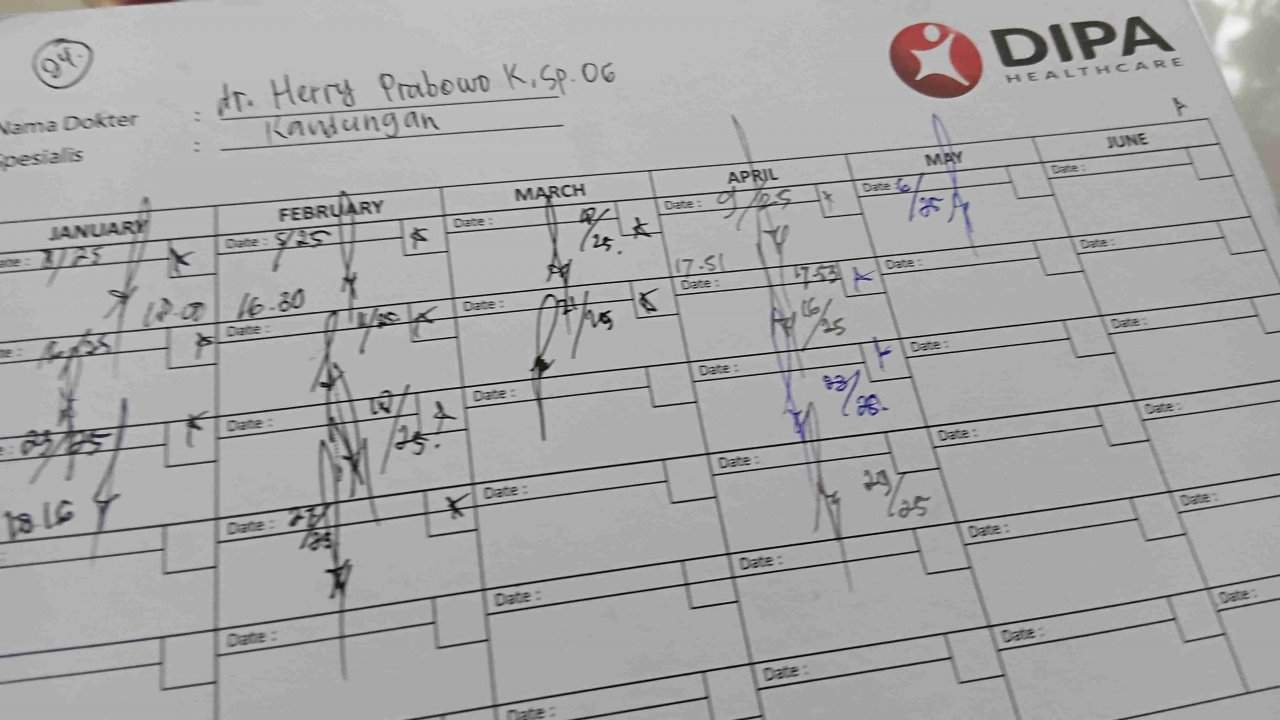 24.
DIPA
HEALTHCARE
Nama Dokter : dr. Herry Prabowo K, Sp.OG
Spesialis : Kandungan
JANUARY FEBRUARY MARCH APRIL MAY JUNE
Date : 8/25 Date : 5/25 Date : /25. Date : 9/25 Date : 6/25 Date :
18.00 16.30 17.51 17.53
Date : /25 Date : /25 Date : /25 Date : 16/25 Date : Date :
Date : 23/25 Date : /25. Date : Date : 23/25. Date : Date :
18.16
Date : Date : /25 Date : Date : 29/25 Date : Date :
Date : Date : Date : Date : Date :
Date : Date : Date : Date :